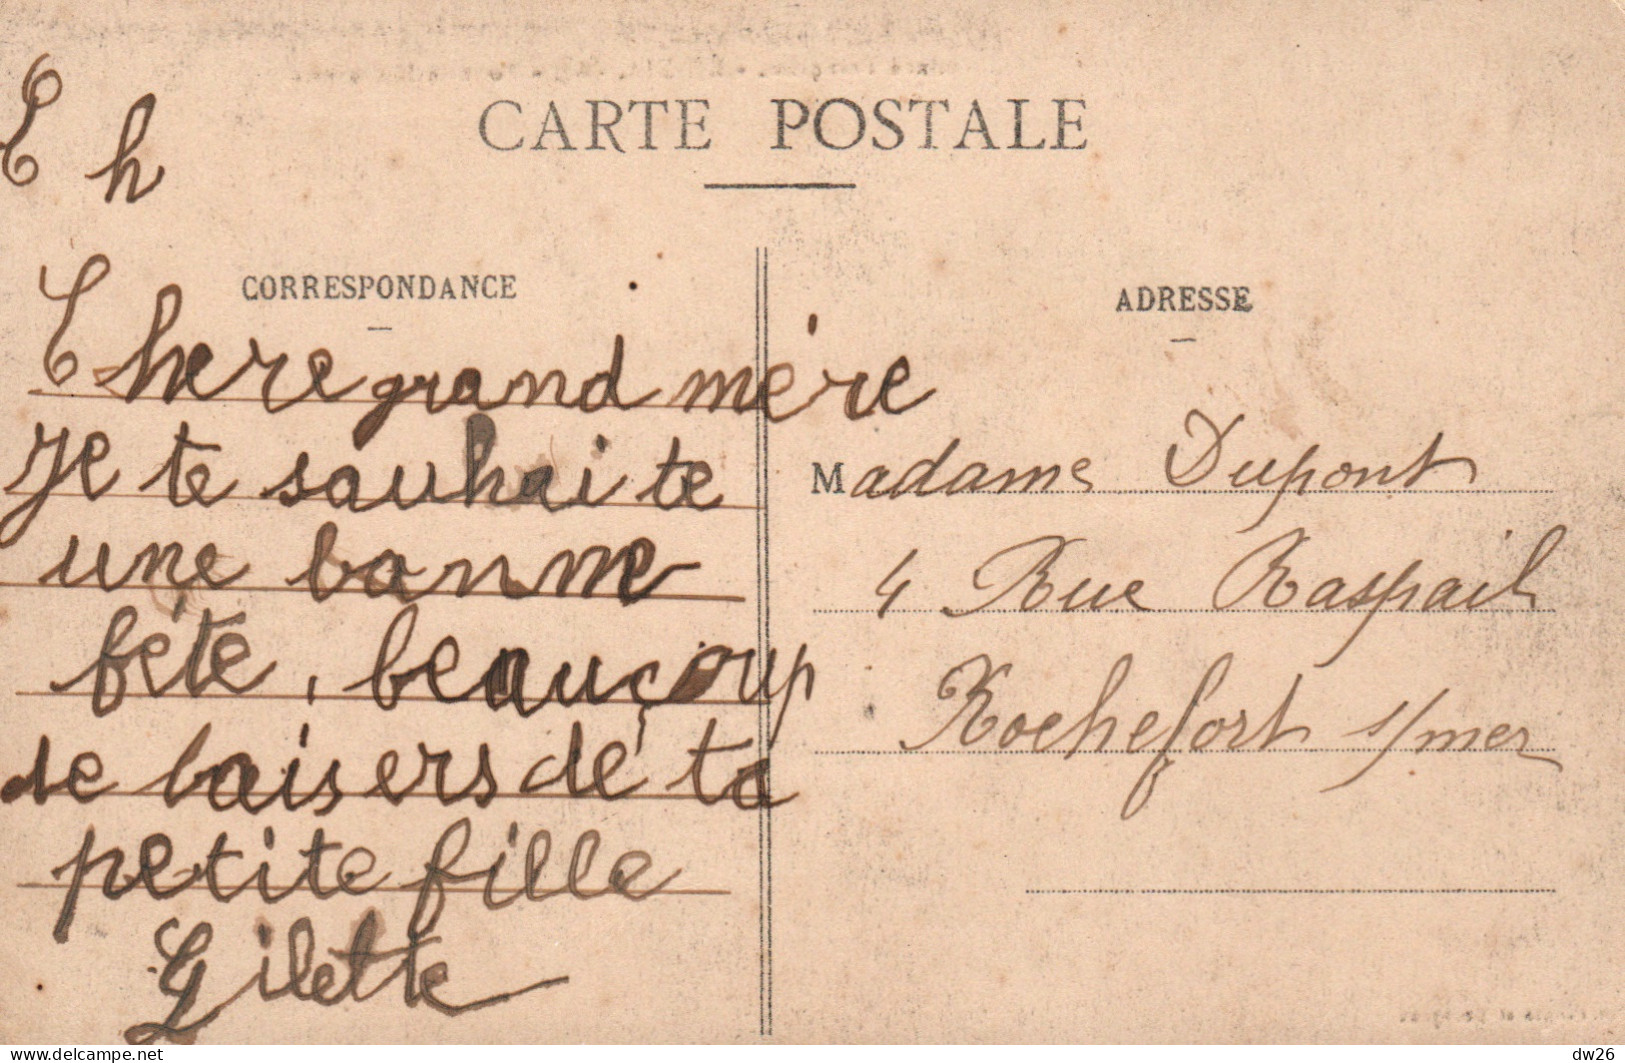 CARTE POSTALE
C h
CORRESPONDANCE
Chere grand mére
Je te souhaite
une bonne
féte, beauçoup
de baisers de ta
petite fille
Gilette
ADRESSE
Madame Dupont
4 Rue Raspail
Rochefort s/mer
dw26
delcampe.net